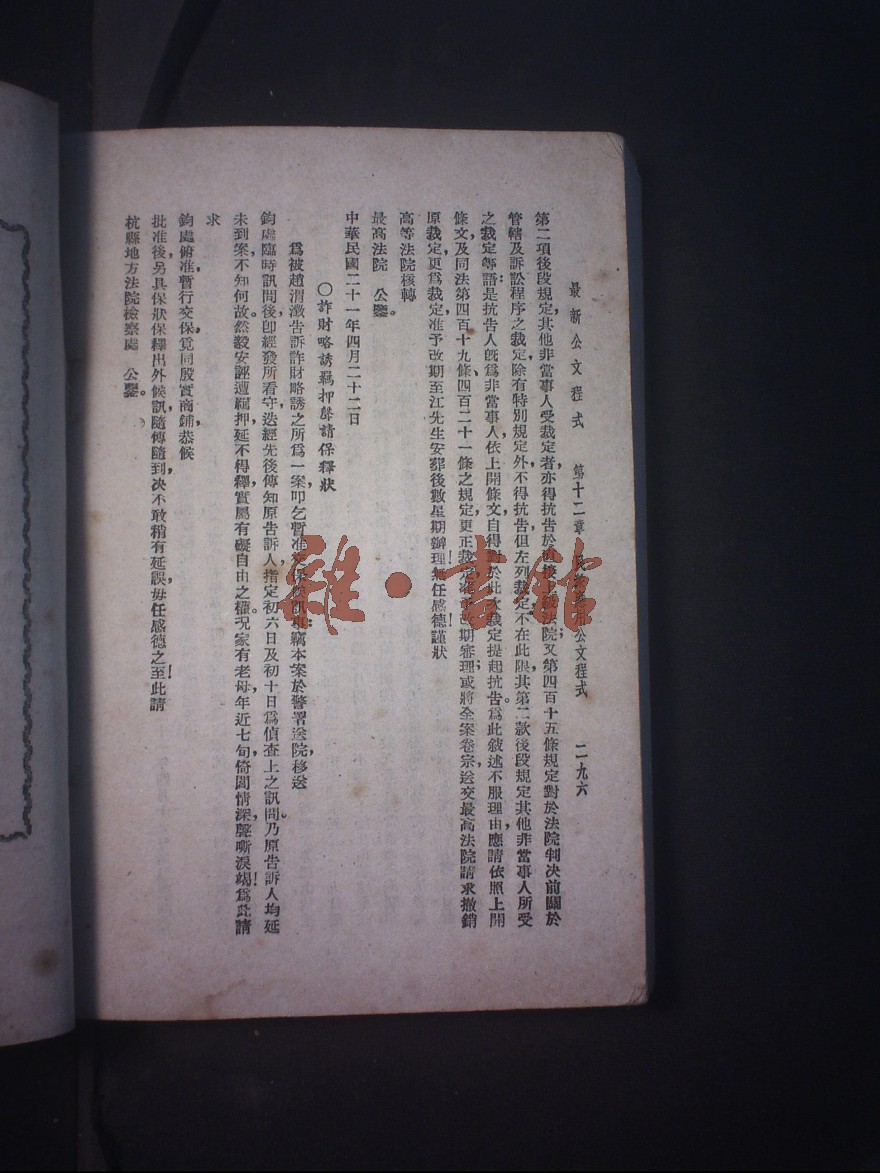 最新公文程式　第十二章　民衆應用公文程式　二九六
第二項後段規定，其他非當事人受裁定者亦得抗告於直接上級法院；又第四百十五條規定對於法院判決前關於
管轄及訴訟程序之裁定，除有特別規定外，不得抗告，但左列裁定，不在此限，其第二款後段規定其他非當事人所受
之裁定等語：是抗告人旣爲非當事人，依上開條文，自得對於此次裁定提起抗告。爲此敍述不服理由，應請依照上開
條文，及同法第四百十九條、四百二十一條之規定，更正裁定，准予改期審理；或將全案卷宗，送交最高法院，請求撤銷
原裁定，更爲裁定，准予改期至江先生安葬後數星期辦理，無任感德！謹狀
高等法院核轉
最高法院　公鑒。
中華民國二十一年四月二十二日
〇詐財略誘羈押聲請保釋狀
爲被趙渭澂告訴詐財略誘之所爲一案，叩乞暫准交保候訊事：竊本案於警署送院，移送
鈞處臨時訊問後，卽經發所看守，迭經先後傳知原告訴人，指定初六日及初十日爲偵查上之訊問。乃原告訴人均延
未到案，不知何故。然毅安誣遭羈押，延不得釋，實屬有礙自由之權。况家有老母，年近七旬，倚閭情深，聲嘶淚竭！爲此請
求
鈞處俯准暫行交保，覓同殷實商鋪，恭候
批准後，另具保狀保釋出外候訊，隨傳隨到，决不敢稍有延誤，毋任感德之至！此請
杭縣地方法院檢察處　公鑒。
雜·書館